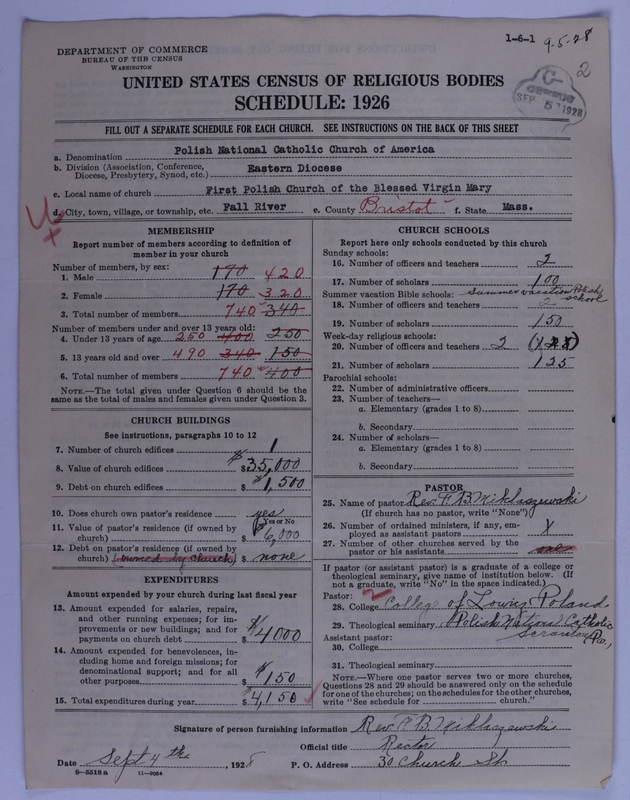 1-6-1 9-5-28
DEPARTMENT OF COMMERCE
BUREAU OF THE CENSUS
WASHINGTON
C-
CENSUS
SEP 5 1928
2
UNITED STATES CENSUS OF RELIGIOUS BODIES
SCHEDULE: 1926
FILL OUT A SEPARATE SCHEDULE FOR EACH CHURCH. SEE INSTRUCTIONS ON THE BACK OF THIS SHEET
a. Denomination Polish National Catholic Church of America
b. Division (Association, Conference, Diocese, Presbytery, Synod, etc.) Eastern Diocese
c. Local name of church First Polish Church of the Blessed Virgin Mary
d. City, town, village, or township, etc. Fall River e. County Bristol f. State Mass.
MEMBERSHIP
Report number of members according to definition of
member in your church
Number of members, by sex:
1. Male 170 420
2. Female 170 320
3. Total number of members 740 340
Number of members under and over 13 years old:
4. Under 13 years of age 250 400 250
5. 13 years old and over 490 340 150
6. Total number of members 740 400
NOTE.—The total given under Question 6 should be the
same as the total of males and females given under Question 3.
CHURCH BUILDINGS
See instructions, paragraphs 10 to 12
7. Number of church edifices 1
8. Value of church edifices $ 35,000
9. Debt on church edifices $ 1,500
10. Does church own pastor's residence yes
Yes or No
11. Value of pastor's residence (if owned by
church) $ 6,000
12. Debt on pastor's residence (if owned by
church) (owned by church) $ none
EXPENDITURES
Amount expended by your church during last fiscal year
13. Amount expended for salaries, repairs,
and other running expenses; for im-
provements or new buildings; and for
payments on church debt $ 4000
14. Amount expended for benevolences, in-
cluding home and foreign missions; for
denominational support; and for all
other purposes $ 150
15. Total expenditures during year $ 4,150
CHURCH SCHOOLS
Report here only schools conducted by this church
Sunday schools:
16. Number of officers and teachers 2
17. Number of scholars 100
Summer vacation Bible schools: Summer vacation Polish school
18. Number of officers and teachers 2
19. Number of scholars 150
Week-day religious schools:
20. Number of officers and teachers 2
21. Number of scholars 125
Parochial schools:
22. Number of administrative officers
23. Number of teachers—
a. Elementary (grades 1 to 8)
b. Secondary
24. Number of scholars—
a. Elementary (grades 1 to 8)
b. Secondary
PASTOR
25. Name of pastor Rev. F. B. Miklaszewski
(If church has no pastor, write "None")
26. Number of ordained ministers, if any, em-
ployed as assistant pastors X
27. Number of other churches served by the
pastor or his assistants one
If pastor (or assistant pastor) is a graduate of a college or
theological seminary, give name of institution below. (If
not a graduate, write "No" in the space indicated.)
Pastor:
28. College College of Lowig Poland
29. Theological seminary Polish National Catholic
Scranton Pa.,
Assistant pastor:
30. College
31. Theological seminary
NOTE.—Where one pastor serves two or more churches,
Questions 28 and 29 should be answered only on the schedule
for one of the churches; on the schedules for the other churches,
write "See schedule for church."
Signature of person furnishing information Rev. F. B. Miklaszewski
Official title Rector
Date Sept 4th, 1928 P. O. Address 30 Church St
8—5518a 11—9054